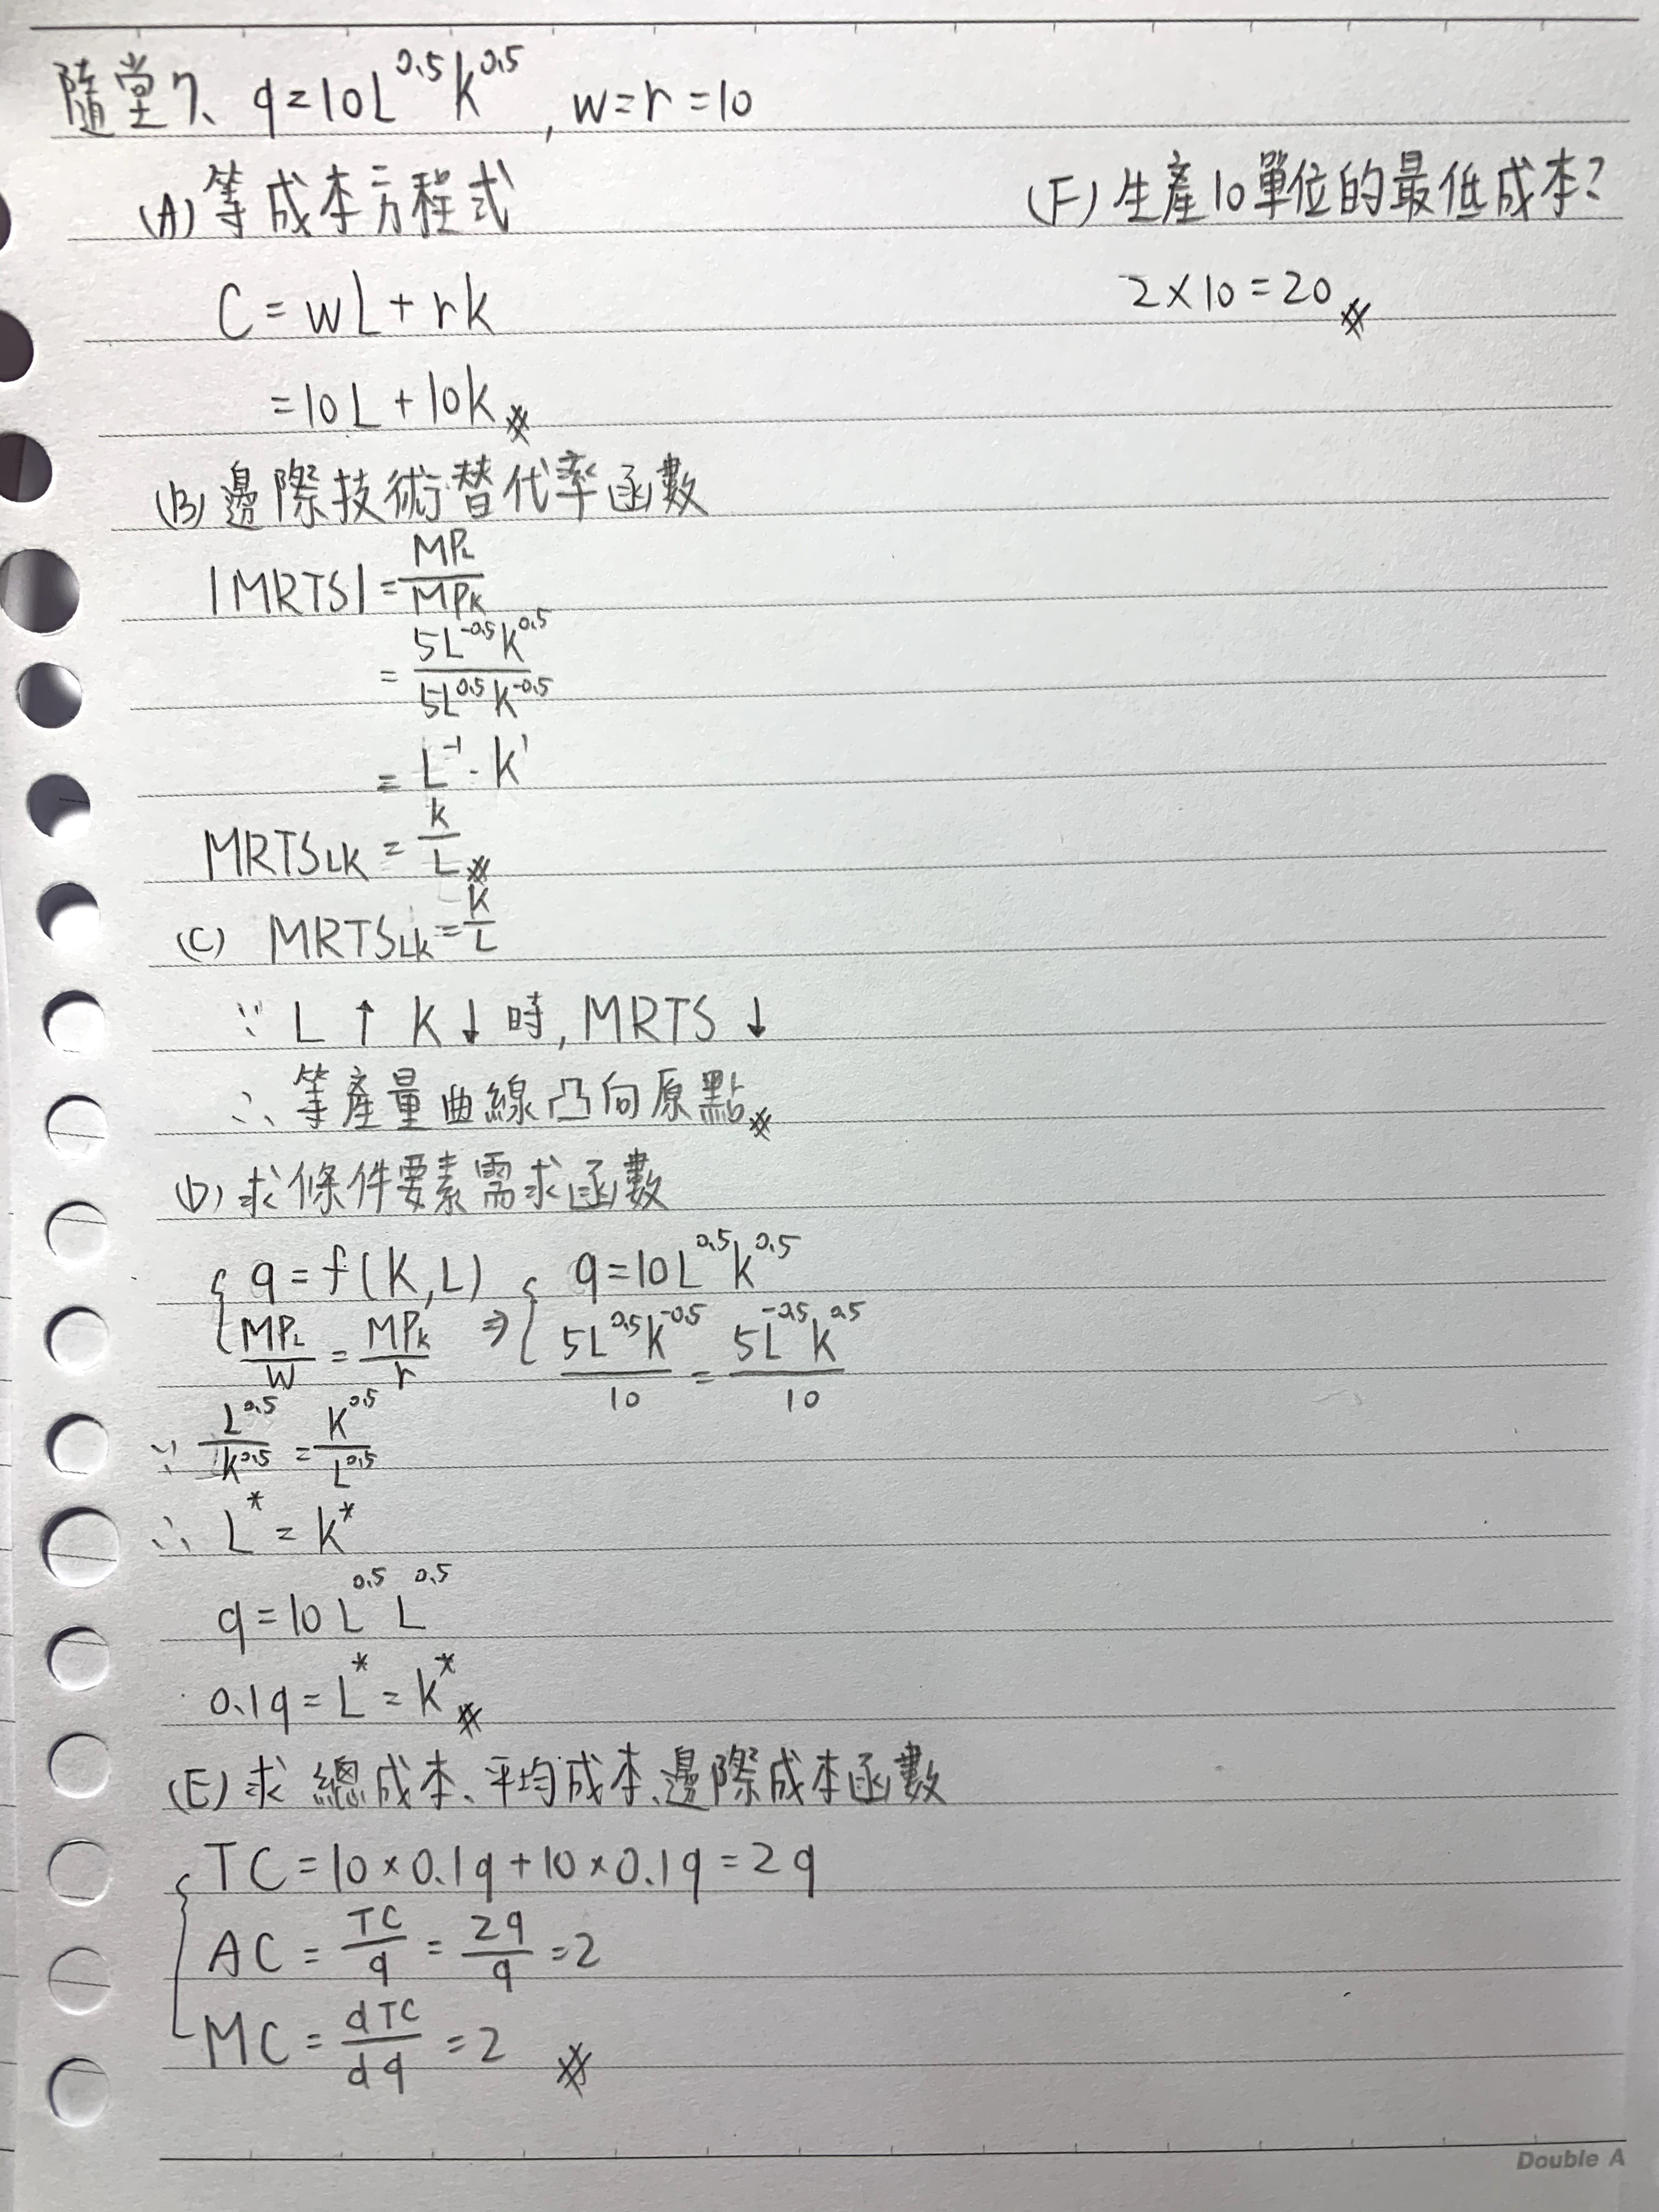 隨堂7、 q=10L^0.5 K^0.5, w=r=10
(A) 等成本方程式
C = wL + rk
=10L +10k※
(B) 邊際技術替代率函數
|MRTS| = MPL/MPK
= 5L^-0.5 K^0.5 / 5L^0.5 K^-0.5
= L^-1 · K^1
MRTSLK = k/L※
(C) MRTSLK = K/L
∵ L ↑ K ↓ 時, MRTS ↓
∴ 等產量曲線凸向原點※
(D) 求條件要素需求函數
{ q = f(K,L) { q=10L^0.5 K^0.5
MPL/W = MPK/r ⇒ 5L^0.5 K^-0.5/10 = 5L^-0.5 K^0.5/10
∵ L^0.5/K^0.5 = K^0.5/L^0.5
∴ L* = K*
q=10 L^0.5 L^0.5
0.1q = L* = K*※
(E) 求總成本、平均成本、邊際成本函數
{ TC = 10×0.1q+10×0.1q=2q
AC = TC/q = 2q/q =2
MC = dTC/dq =2 ※
(F) 生產10單位的最低成本?
2×10=20※
Double A